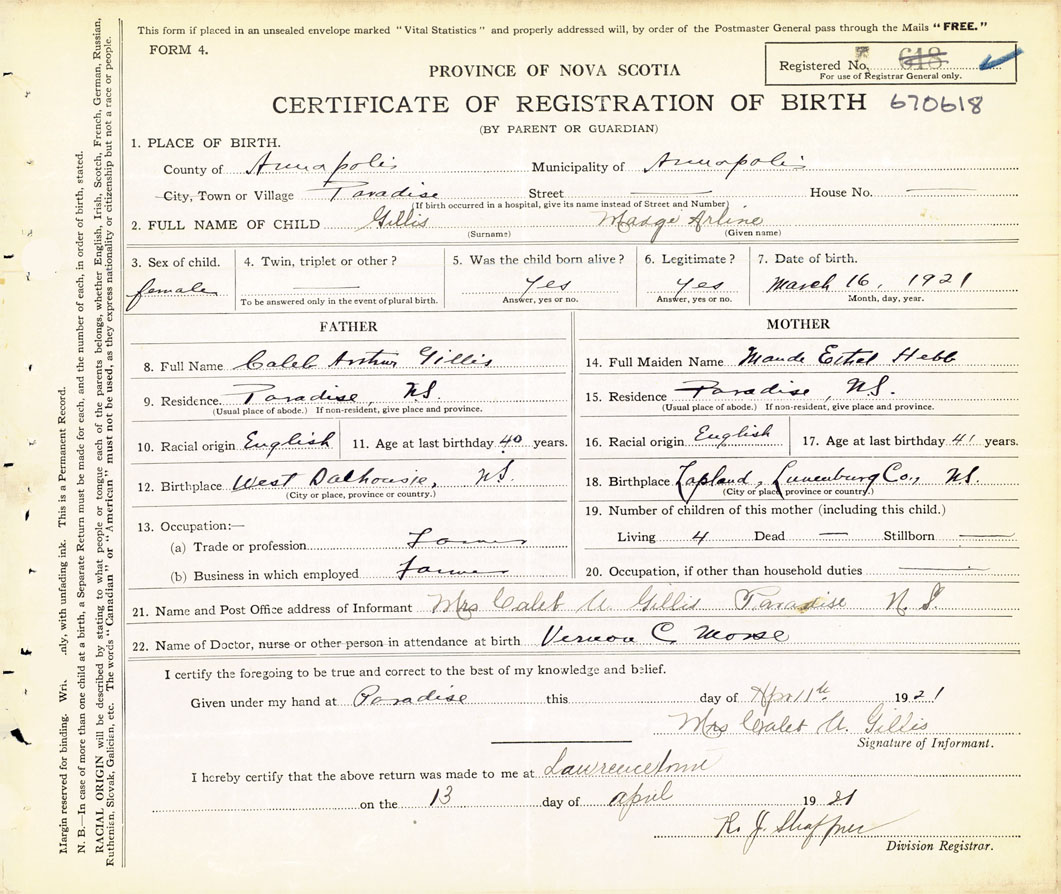 This form if placed in an unsealed envelope marked "Vital Statistics" and properly addressed will, by order of the Postmaster General pass through the Mails "FREE."
FORM 4.
Registered No. 618
For use of Registrar General only.
PROVINCE OF NOVA SCOTIA
CERTIFICATE OF REGISTRATION OF BIRTH 670618
(BY PARENT OR GUARDIAN)
1. PLACE OF BIRTH.
County of Annapolis Municipality of Annapolis
City, Town or Village Paradise Street House No.
(If birth occurred in a hospital, give its name instead of Street and Number)
2. FULL NAME OF CHILD Gillis Madge Arline
(Surname) (Given name)
3. Sex of child. 4. Twin, triplet or other? 5. Was the child born alive? 6. Legitimate? 7. Date of birth.
female Yes Yes March 16, 1921
To be answered only in the event of plural birth. Answer, yes or no. Answer, yes or no. Month, day, year.
FATHER
8. Full Name Caleb Arthur Gillis
9. Residence Paradise, N.S.
(Usual place of abode.) If non-resident, give place and province.
10. Racial origin English 11. Age at last birthday 40 years.
12. Birthplace West Dalhousie, N.S.
(City or place, province or country.)
13. Occupation:—
(a) Trade or profession Farmer
(b) Business in which employed Farmer
MOTHER
14. Full Maiden Name Maude Ethel Hebb
15. Residence Paradise, N.S.
(Usual place of abode.) If non-resident, give place and province.
16. Racial origin English 17. Age at last birthday 41 years.
18. Birthplace Lapland, Lunenburg Co., N.S.
(City or place, province or country.)
19. Number of children of this mother (including this child.)
Living 4 Dead — Stillborn
20. Occupation, if other than household duties
21. Name and Post Office address of Informant Mrs Caleb A. Gillis Paradise N.S.
22. Name of Doctor, nurse or other person in attendance at birth Vernon C. Morse
I certify the foregoing to be true and correct to the best of my knowledge and belief.
Given under my hand at Paradise this day of Apr 11th 1921
Mrs Caleb A. Gillis
Signature of Informant.
I hereby certify that the above return was made to me at Lawrencetown
on the 13 day of April 1921
R. J. Shaffner
Division Registrar.
Margin reserved for binding. Wri nly, with unfading ink. This is a Permanent Record.
N. B.—In case of more than one child at a birth, a Separate Return must be made for each, and the number of each, in order of birth, stated.
RACIAL ORIGIN will be described by stating to what people or tongue each of the parents belongs, whether English, Irish, Scotch, French, German, Russian,
Ruthenian, Slovak, Galician, etc. The words "Canadian" or "American" must not be used, as they express nationality or citizenship but not a race or people.